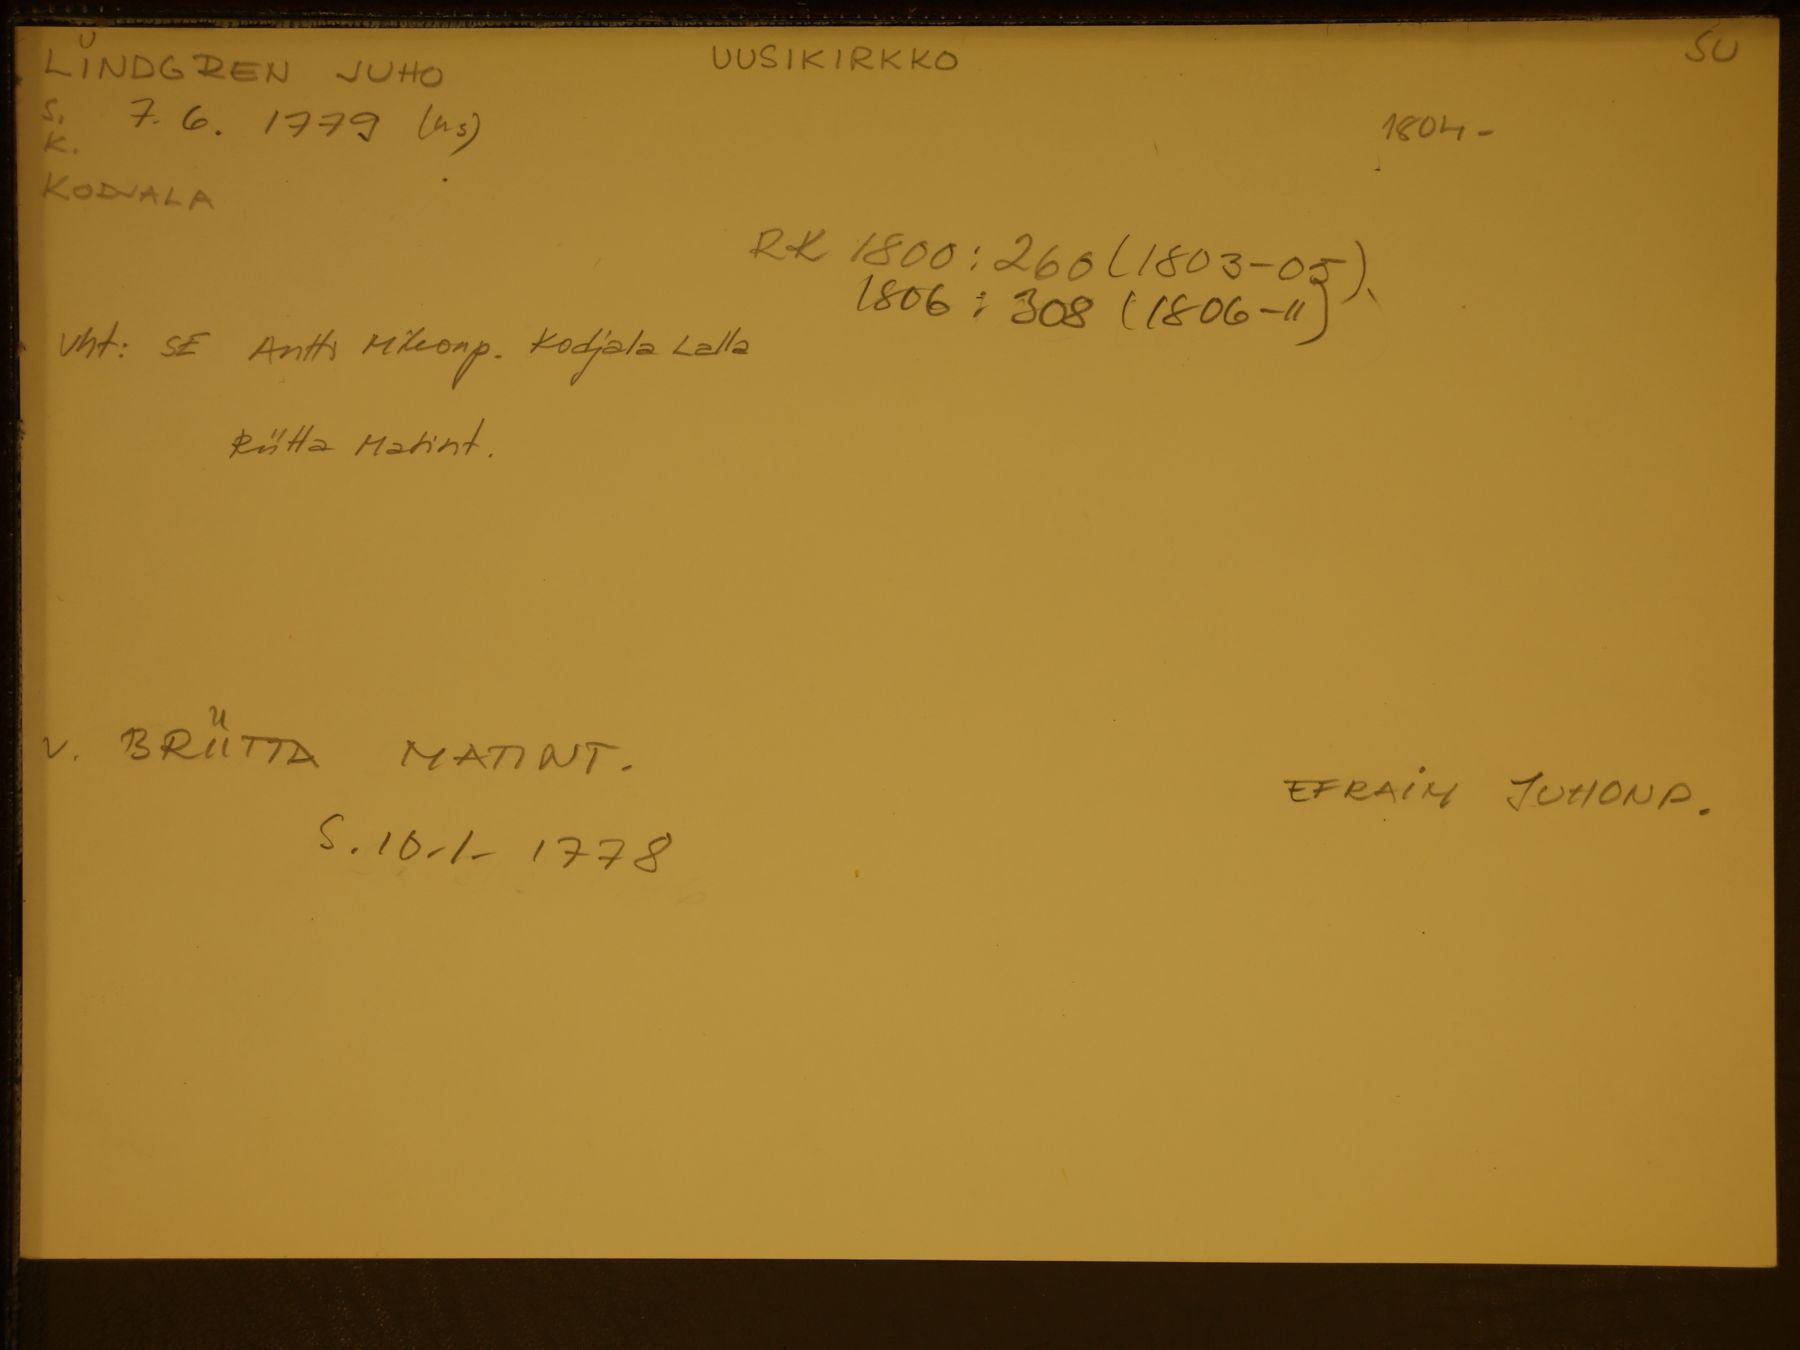 LINDGREN JUHO UUSIKIRKKO SU
S. 7.6. 1779 (us) 1804-
K.
KODJALA
RK 1800: 260 (1803-05)
1806: 308 (1806-11)
Vht: SE Antti Mikonp. Kodjala Lalla
Riitta Matint.
V. BRIITTA MATINT.
EFRAIM JUHONP.
S. 10.1. 1778